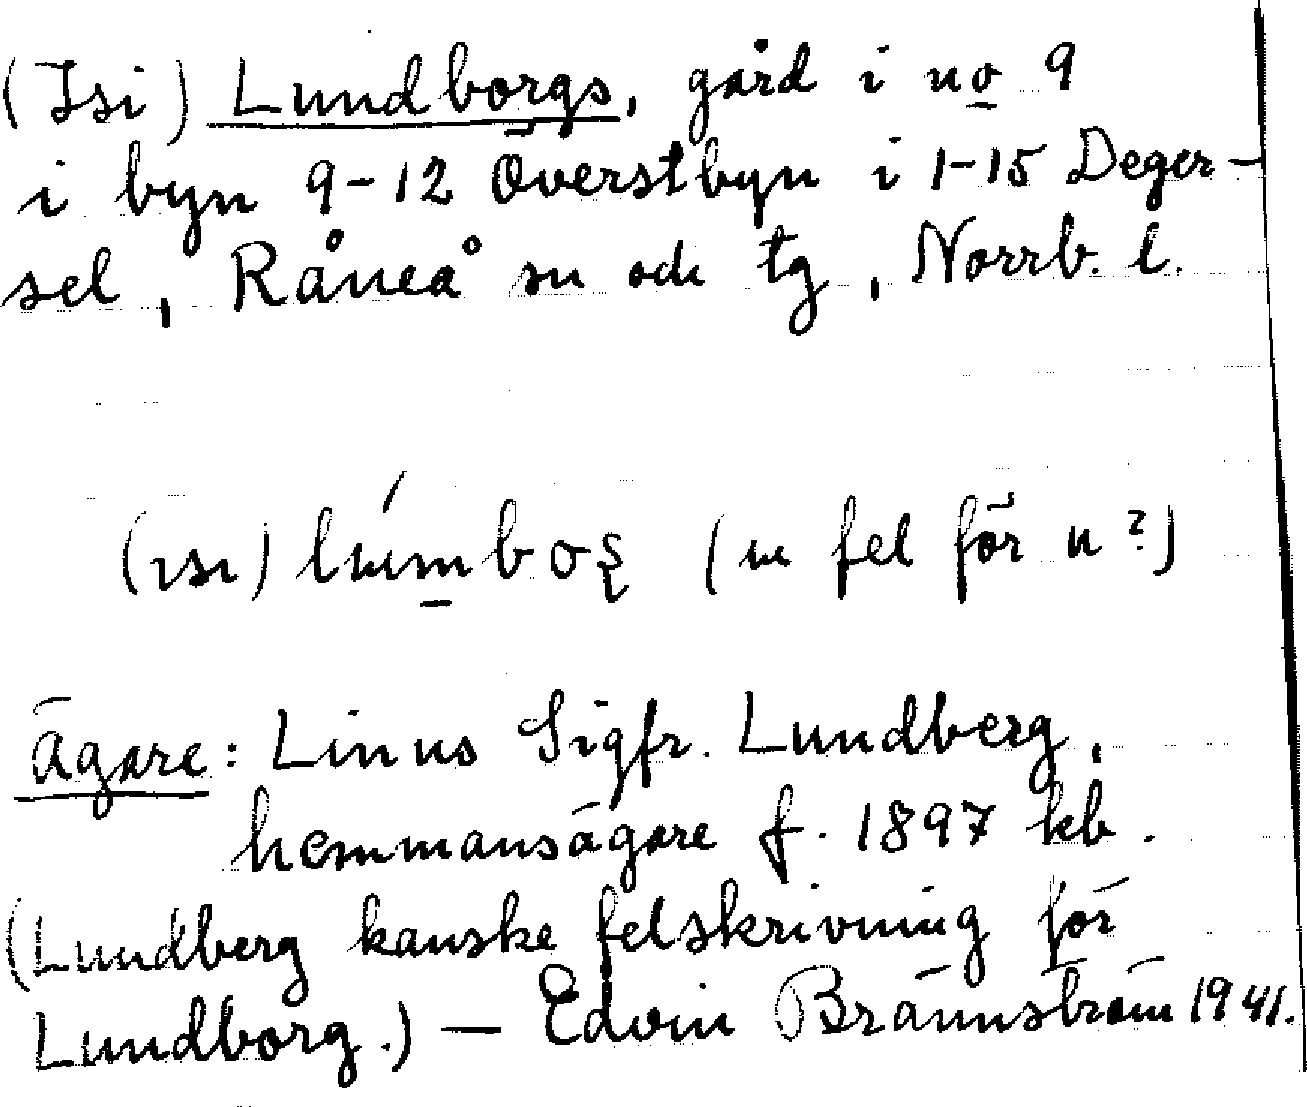 (Isi) Lundborgs, gård i no 9
i byn 9-12 Överstbyn i 1-15 Deger-
sel, Råneå sn och tg, Norrb. l.
(ısı) (m fel för n?)
Ägare: Linus Sigfr. Lundberg,
hemmansägare f. 1897 kb.
(Lundberg kanske felskrivning för
Lundborg.) — Edvin Brännström 1941.